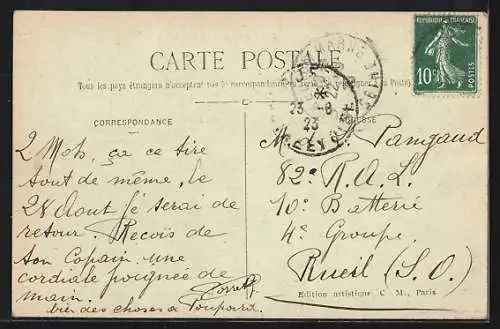 CARTE POSTALE
RÉPUBLIQUE FRANÇAISE
10c
POSTES
Tous les pays étrangers n'acceptent pas la correspondance
23 -8
23
CORRESPONDANCE
ADRESSE
2 Mots, ça ce tire
tout de même, le
28 Aout je serai de
retour. Recois de
ton Copain une
cordiale poignée de
main.
bien des choses à Poupart.
Pangaud
82e R.A.L.
10e Batterie
4e Groupe
Rueil (S.O.)
Edition artistique C M, Paris